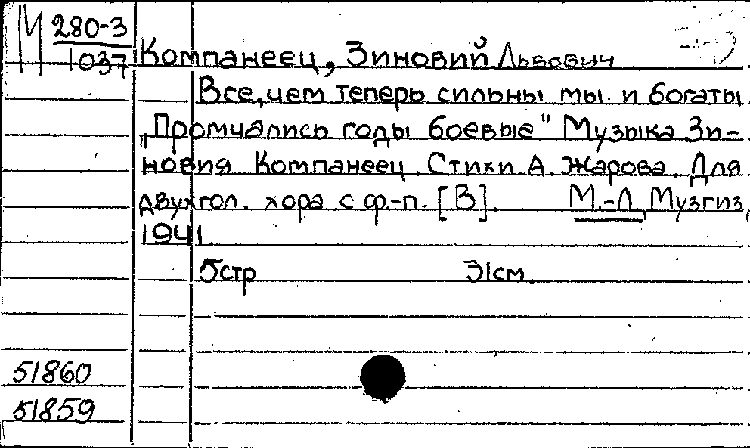 М 280-3
1037
Компанеец, Зиновий Львович
Все, чем теперь сильны мы и богаты
„Промчались годы боевые" Музыка Зи-
новия Компанеец. Стихи А. Жарова. Для
двухгол. хора с ф.-п. [В]. М.-Л, Музгиз,
1941
5стр 31см.
51860
51859